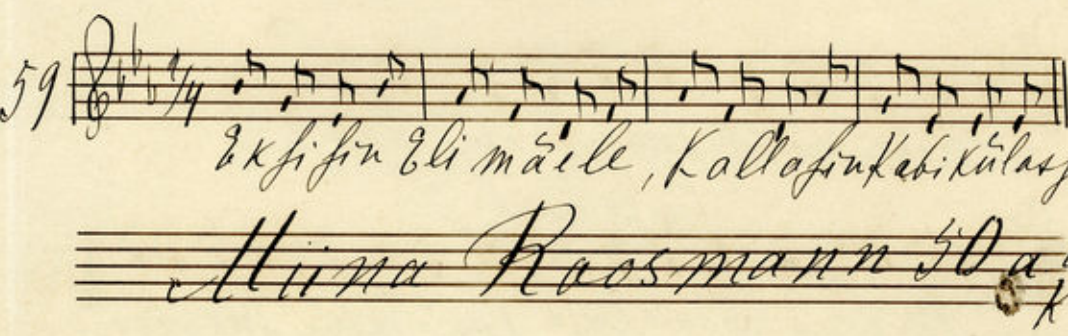 59
Eksisin Eli mäele, Kallasin Kabikülas
Miina Roosmann 50 a.
K